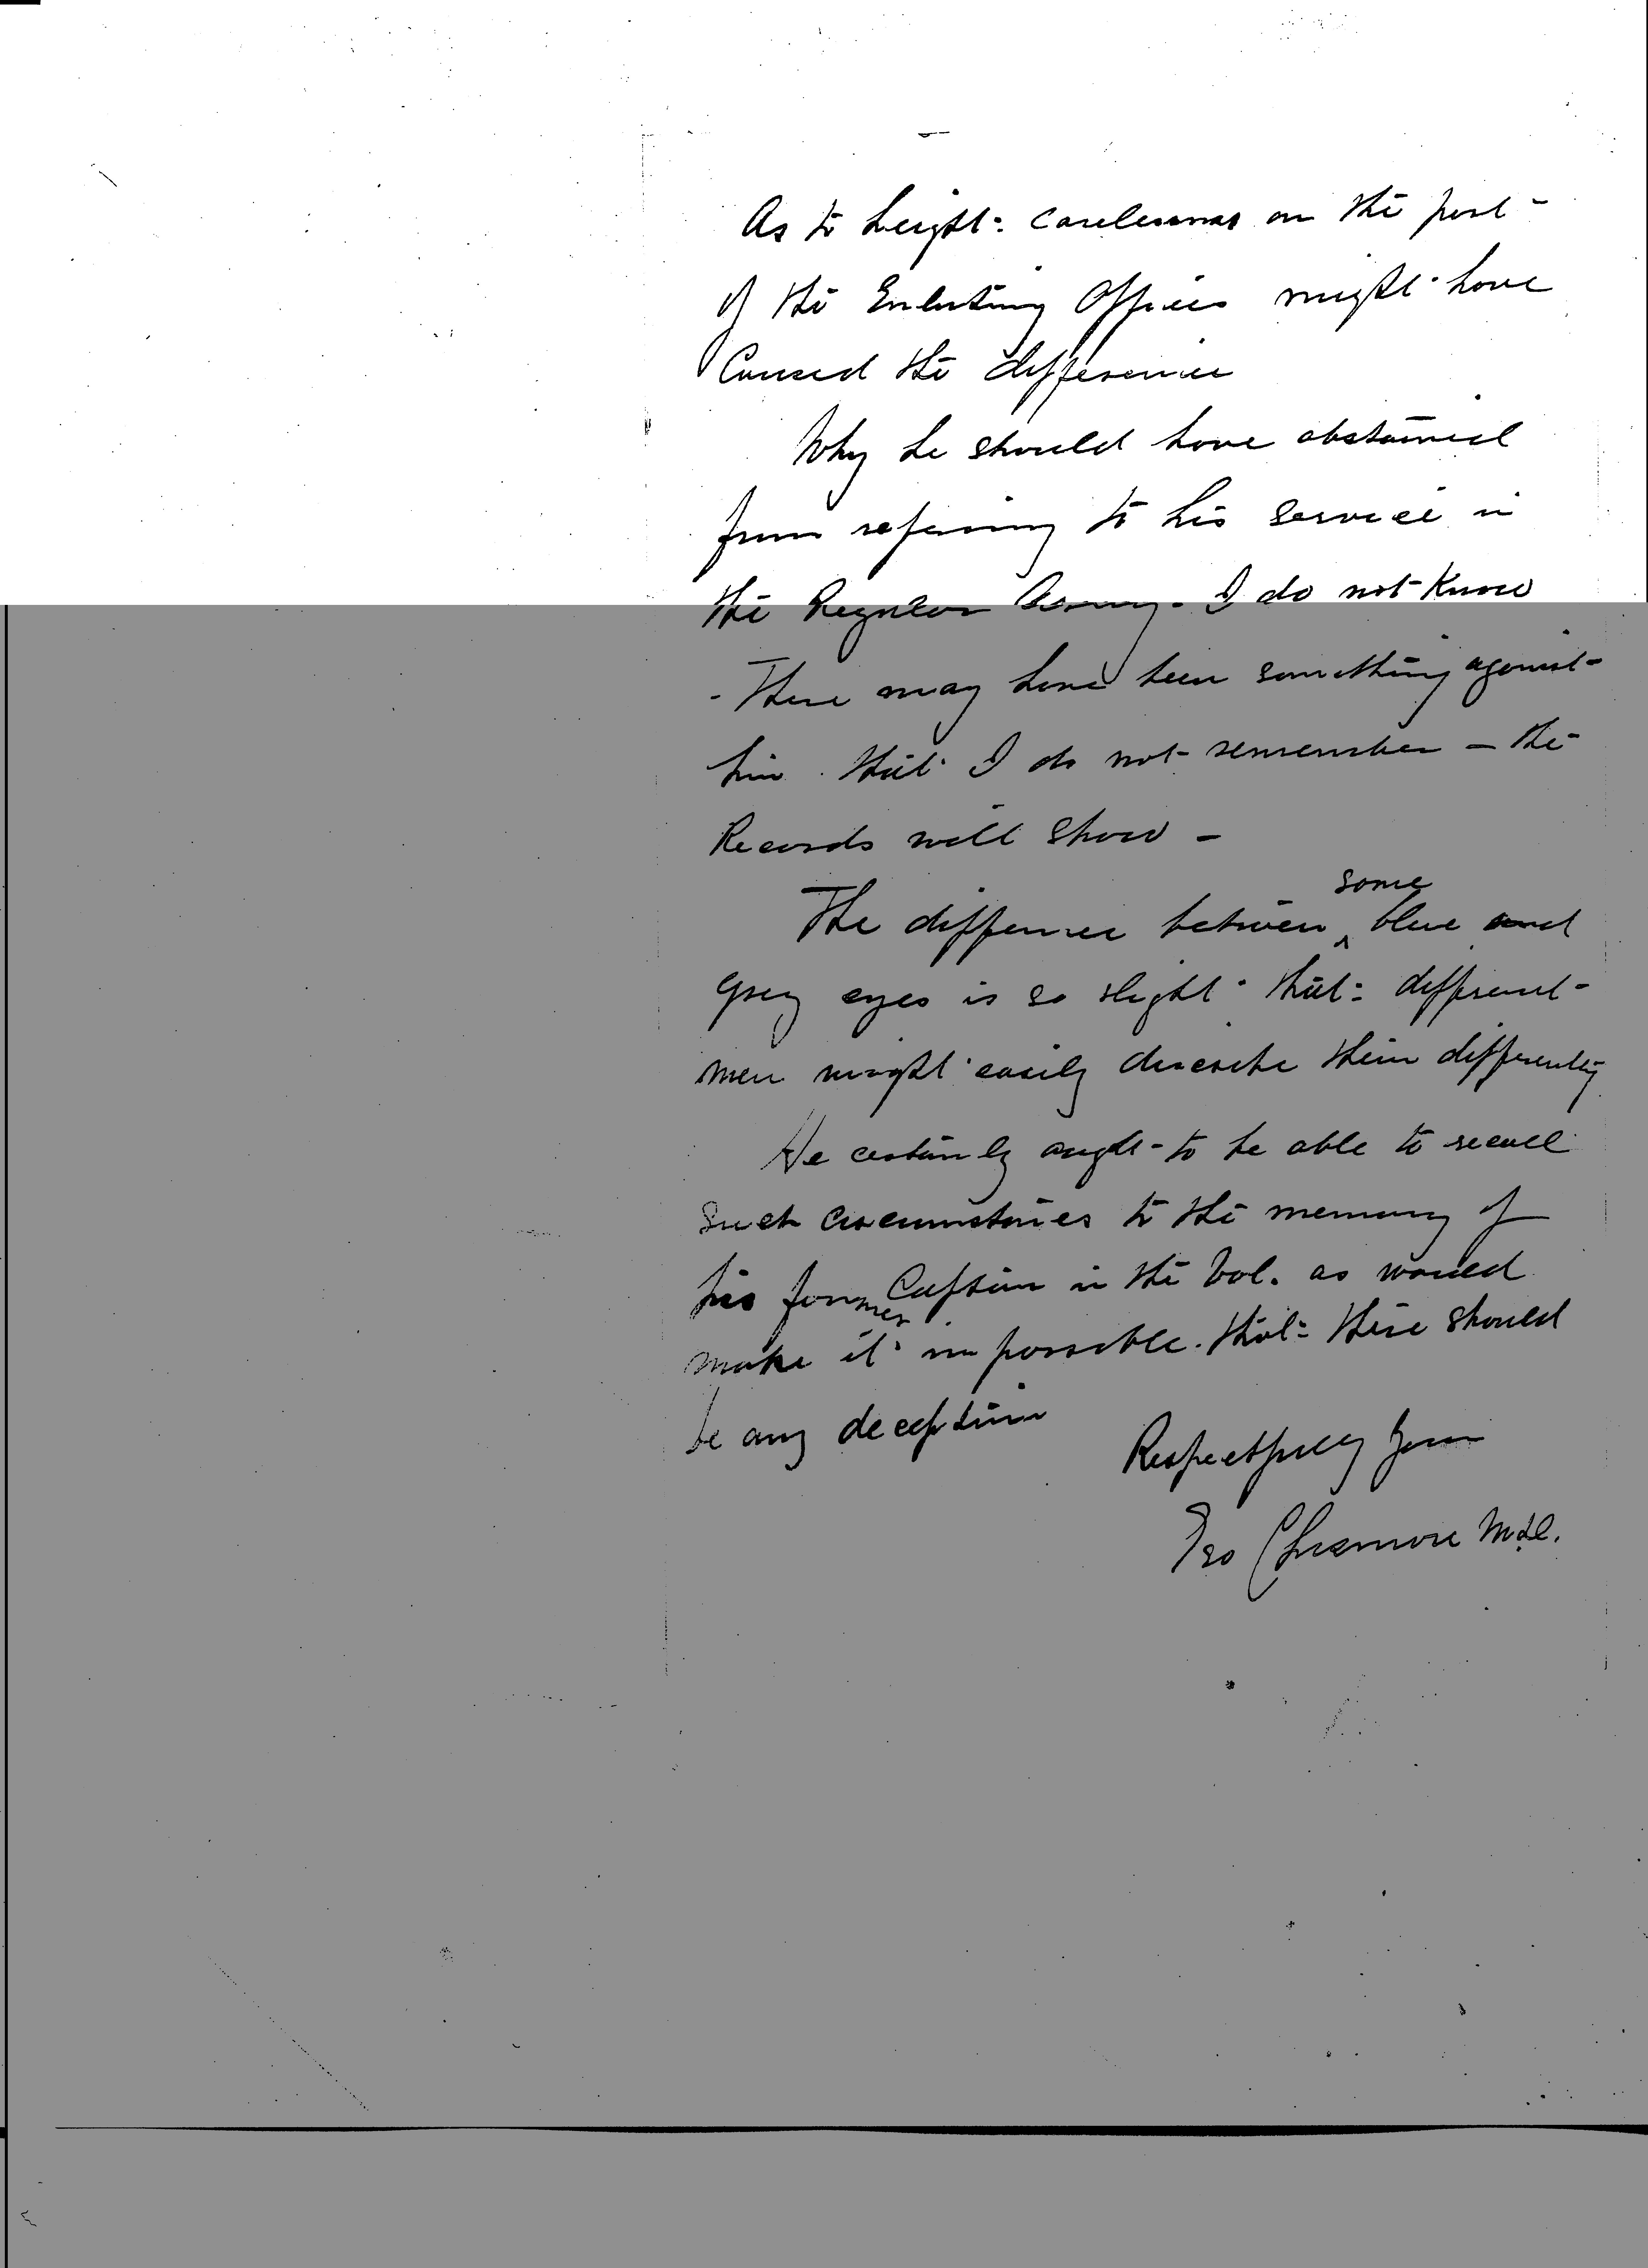 As to height: carelessness on the part
of the Enlisting Officer might have
Caused the difference
Why he should have abstained
from refering to his service in
the Regular Army - I do not Know
- There may have been something against
him that I do not remember - the
Records will show -
The difference between some blue and
grey eyes is so slight that different
men might easily describe them differently
He certainly ought to be able to recall
such circumstances to the memory of
his former Captain in the Vol. as would
make it impossible that there should
be any deception
Respectfully Yours
M.D.